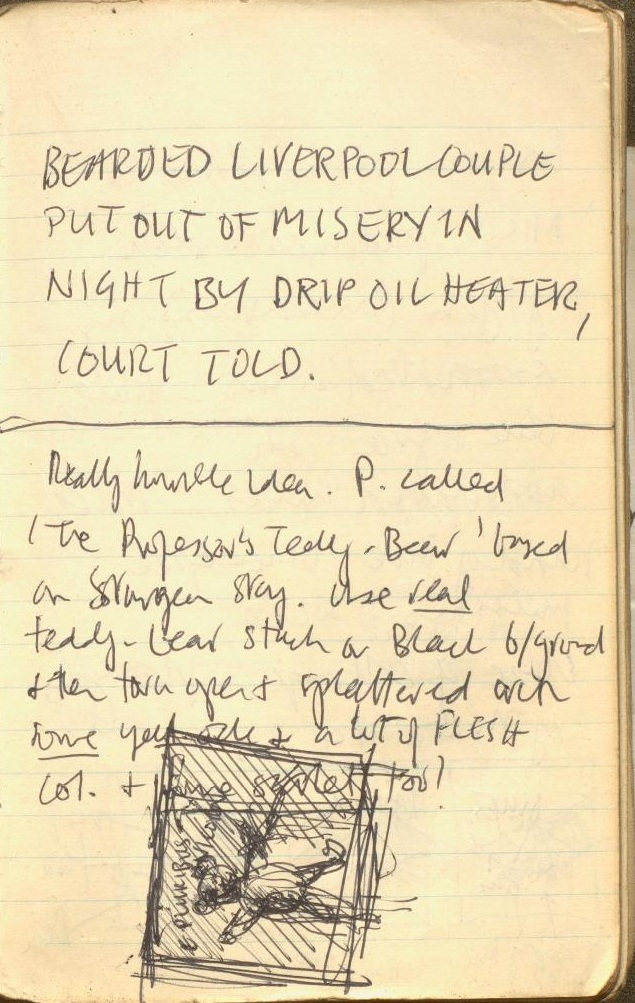 BEARDED LIVERPOOL COUPLE
PUT OUT OF MISERY IN
NIGHT BY DRIP OIL HEATER,
COURT TOLD.
Really horrible idea. P. called
'The Professor's Teddy-Bear' based
on Sturgeon story. Use real
teddy-bear stuck on Black b/ground
& then torn open & splattered with
some & a lot of FLESH
Col. & some scarlet too!